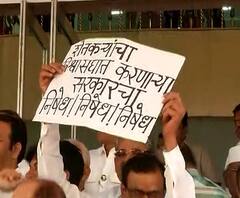 शेतकऱ्यांचा
विश्वासघात करणाऱ्या
सरकारचा
निषेध! निषेध! निषेध